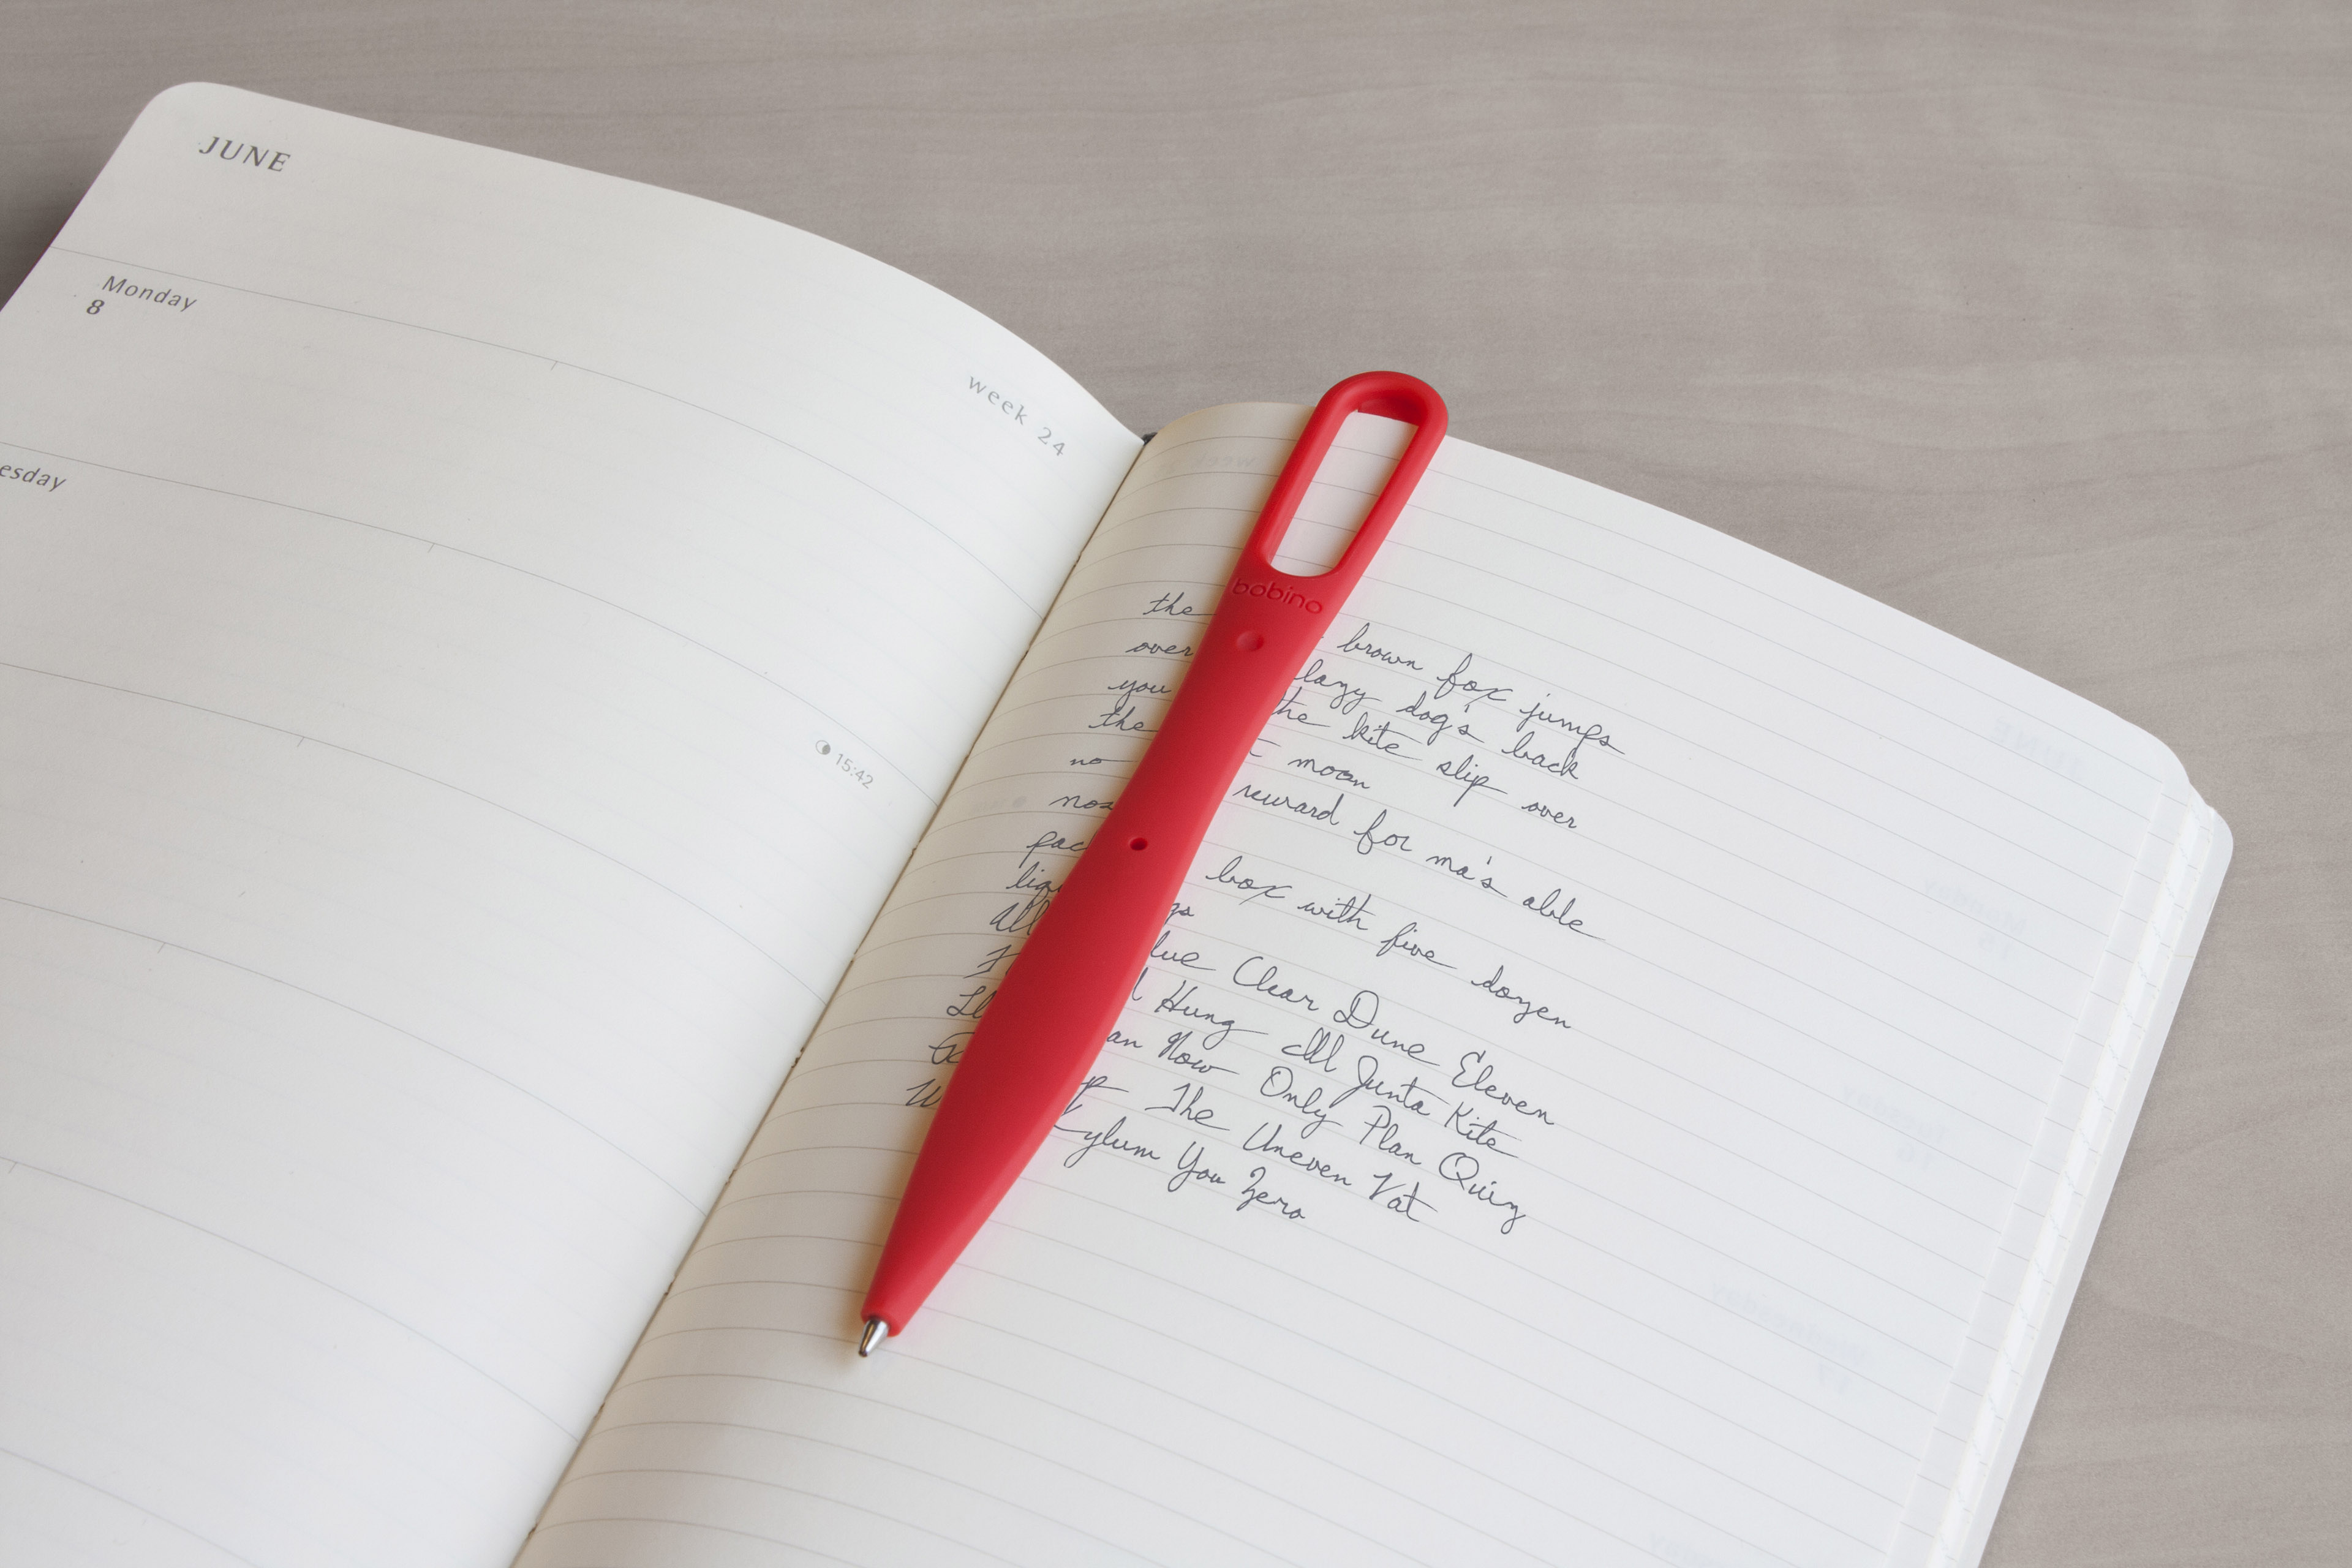 JUNE
Monday
8
week 24
esday
15:42
bobino
the brown fox jumps
over lazy dog's back
you the kite slip over
the moon
no reward for ma's able
nos
pac box with five dozen
liqu gs
All lue Clear Dune Eleven
l Hung Ill Junta Kite
Ll an Now Only Plan Quiz
The Uneven Vat
W ylum You Zero